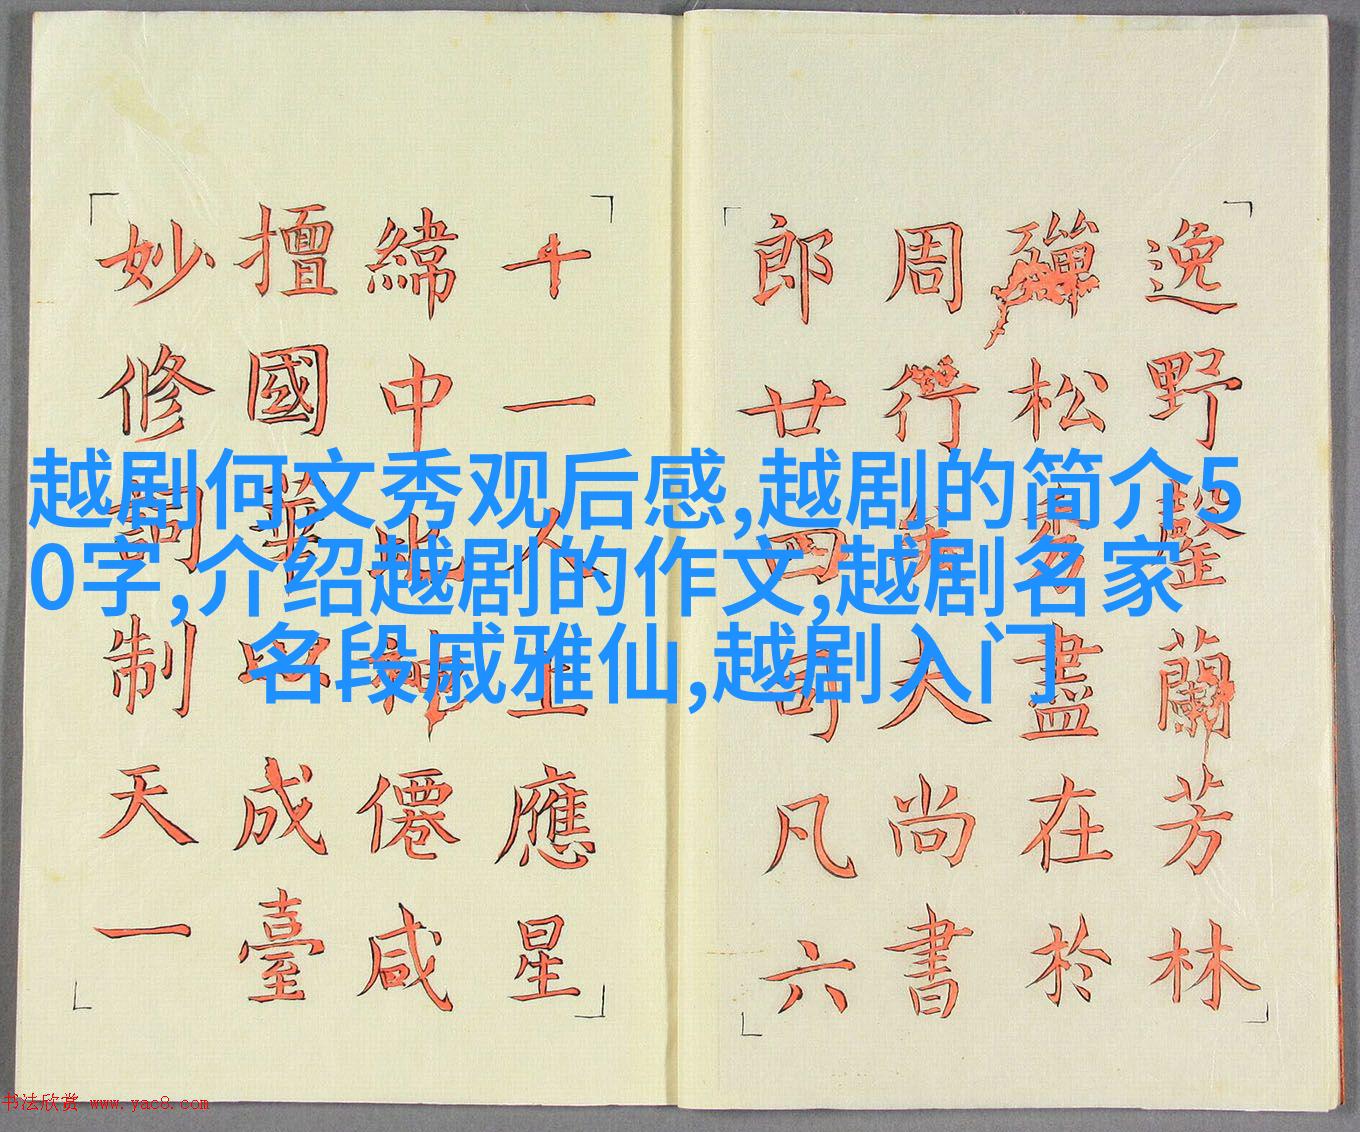 越剧何文秀观后感,越剧的简介5
0字,介绍越剧的作文,越剧名家
名段戚雅仙,越剧入门
逸野蘭芳林
殫松盡在於
周行夫尚書
郎廿四司凡六
十一人上應星
緯中比神僊咸
擅國華以成臺
妙修詞制天一
书法欣赏 www.yac8.com